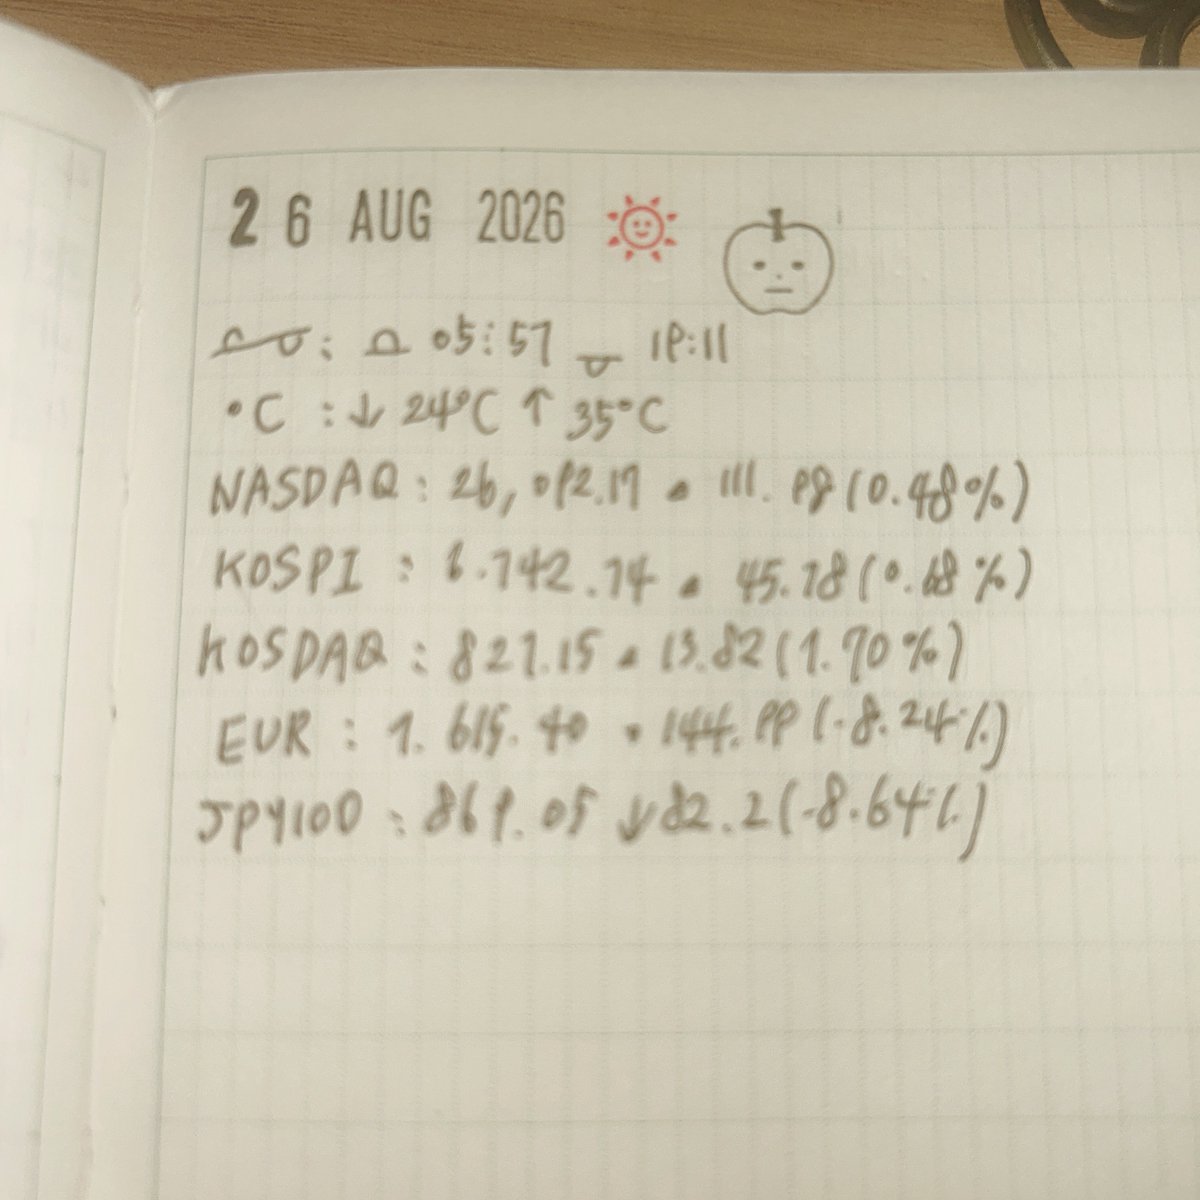 26 AUG 2026
: 05:57 19:11
°C : ↓ 24°C ↑ 35°C
NASDAQ : 26,092.17 ▲ 111.98 (0.48%)
KOSPI : 6.742.74 ▲ 45.78 (0.68%)
KOSDAQ : 827.15 ▲ 13.82 (1.70%)
EUR : 1.615.40 144.99 (-8.24%)
JPY100 : 869.05 ↓ 82.2 (-8.64%)